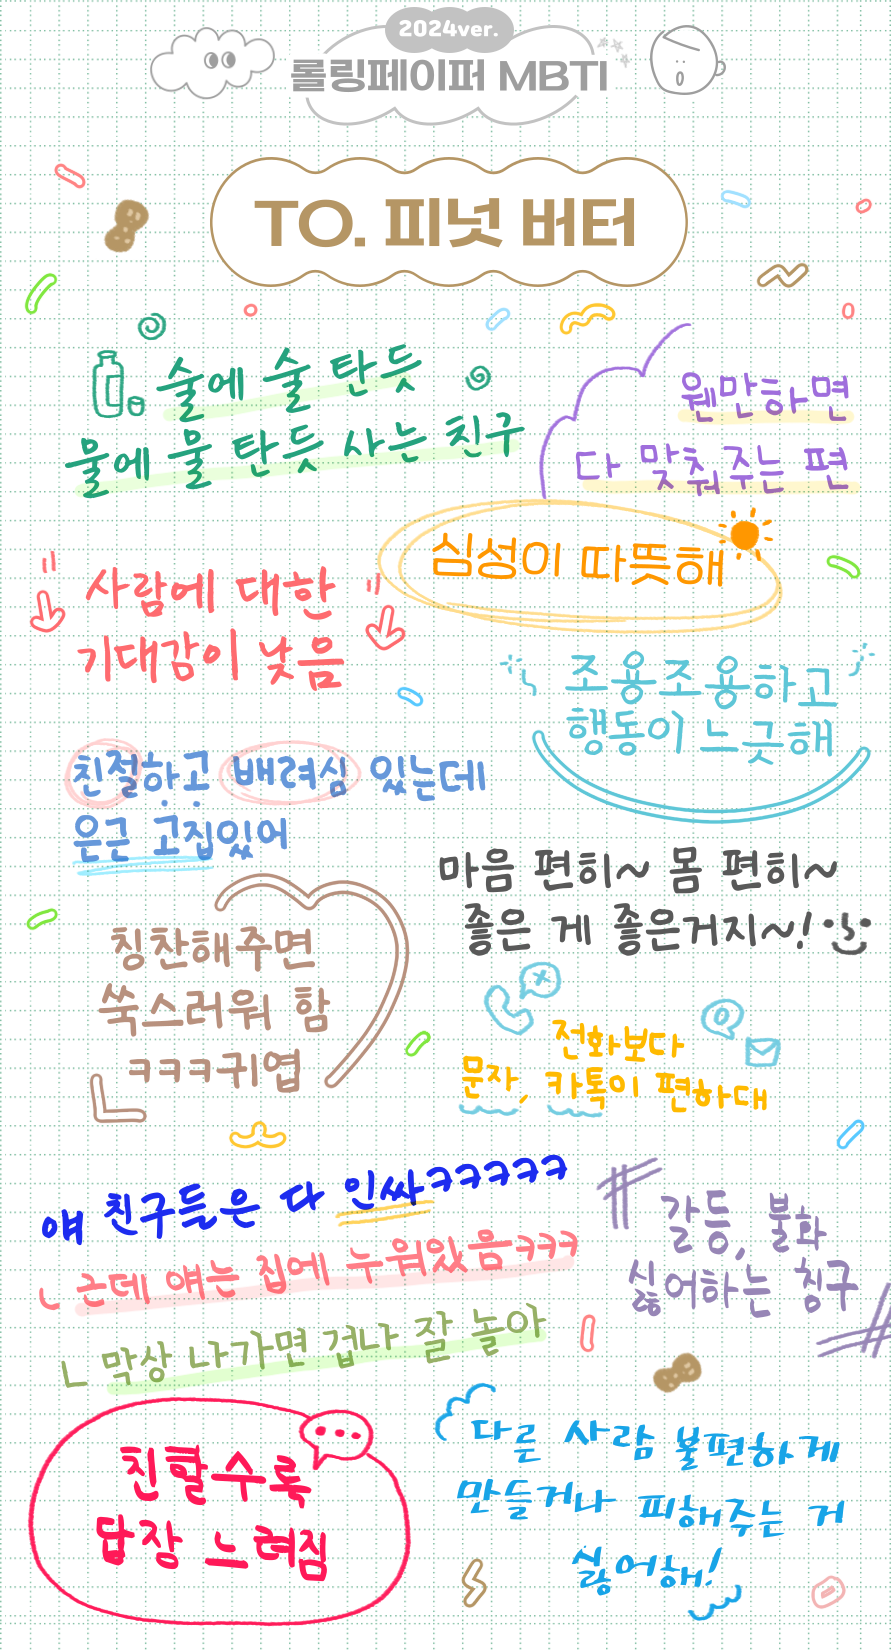 2024ver.
롤링페이퍼 MBTI
TO. 피넛 버터
술에 술 탄듯
물에 물 탄듯 사는 친구
웬만하면
다 맞춰주는 편
심성이 따뜻해
사람에 대한
기대감이 낮음
조용조용하고
행동이 느긋해
친절하고 배려심 있는데
은근 고집있어
마음 편히~ 몸 편히~
좋은 게 좋은거지~!
칭찬해주면
쑥스러워 함
ㅋㅋㅋ귀엽
전화보다
문자, 카톡이 편하대
얘 친구들은 다 인싸ㅋㅋㅋㅋㅋ
ㄴ 근데 얘는 집에 누워있음ㅋㅋㅋ
ㄴ 막상 나가면 겁나 잘 놀아
갈등, 불화
싫어하는 칭구
친할수록
답장 느려짐
다른 사람 불편하게
만들거나 피해주는 거
싫어해!